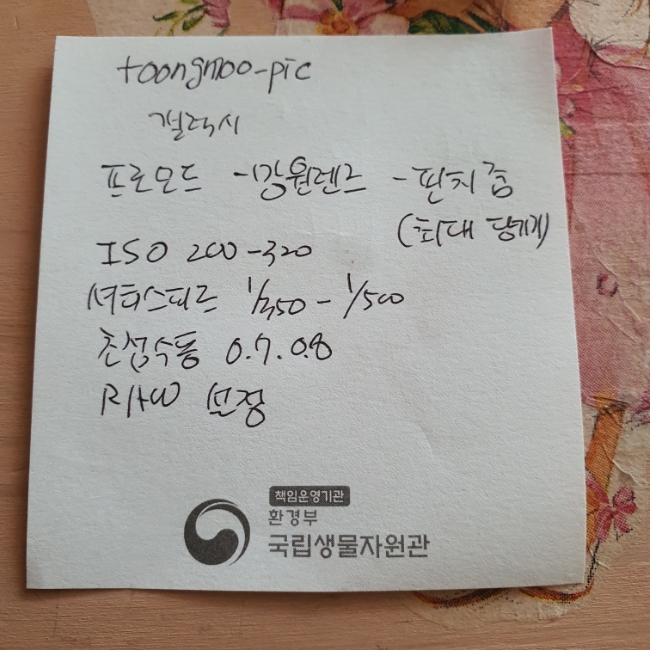 toongmoo-pic
갤럭시
프로모드 - 망원렌즈 - 핀치줌
(최대 당기기)
ISO 200-320
셔터스피드 1/250 - 1/500
초점수동 0.7. 0.8
RAW 설정
책임운영기관
환경부
국립생물자원관